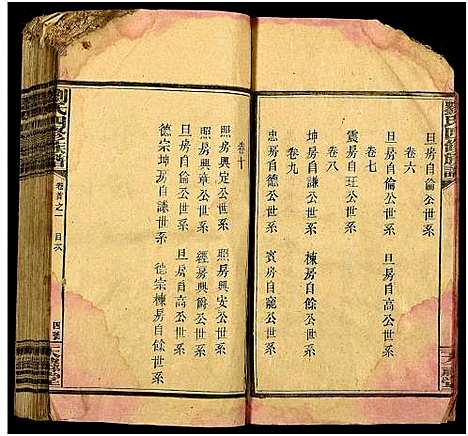 劉氏四修族譜
卷六
旦房自倫公世系
旦房自倫公世系
卷七
震房自玨公世系
卷八
坤房自謙公世系 棟房自餘公世系
卷九
忠房自儒公世系 賓房自寵公世系
卷十
熙房興定公世系 熙房興安公世系
熙房興章公世系 經房興爵公世系
旦房自倫公世系 旦房自高公世系
德宗坤房自謙世系 德宗棟房自餘世系
劉氏四修族譜
卷首之一
目次